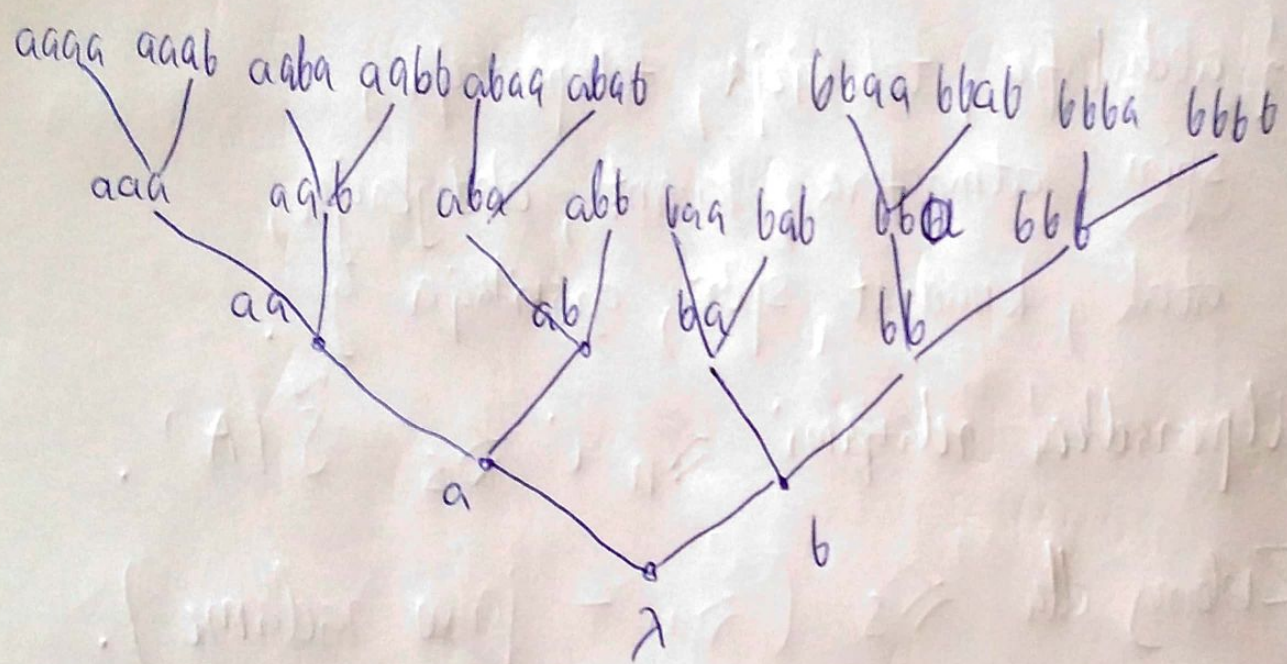 aaaa aaab aaba aabb abaa abab bbaa bbab bbba bbbb
aaa aab aba abb baa bab bba bbb
aa ab ba bb
a b
λ